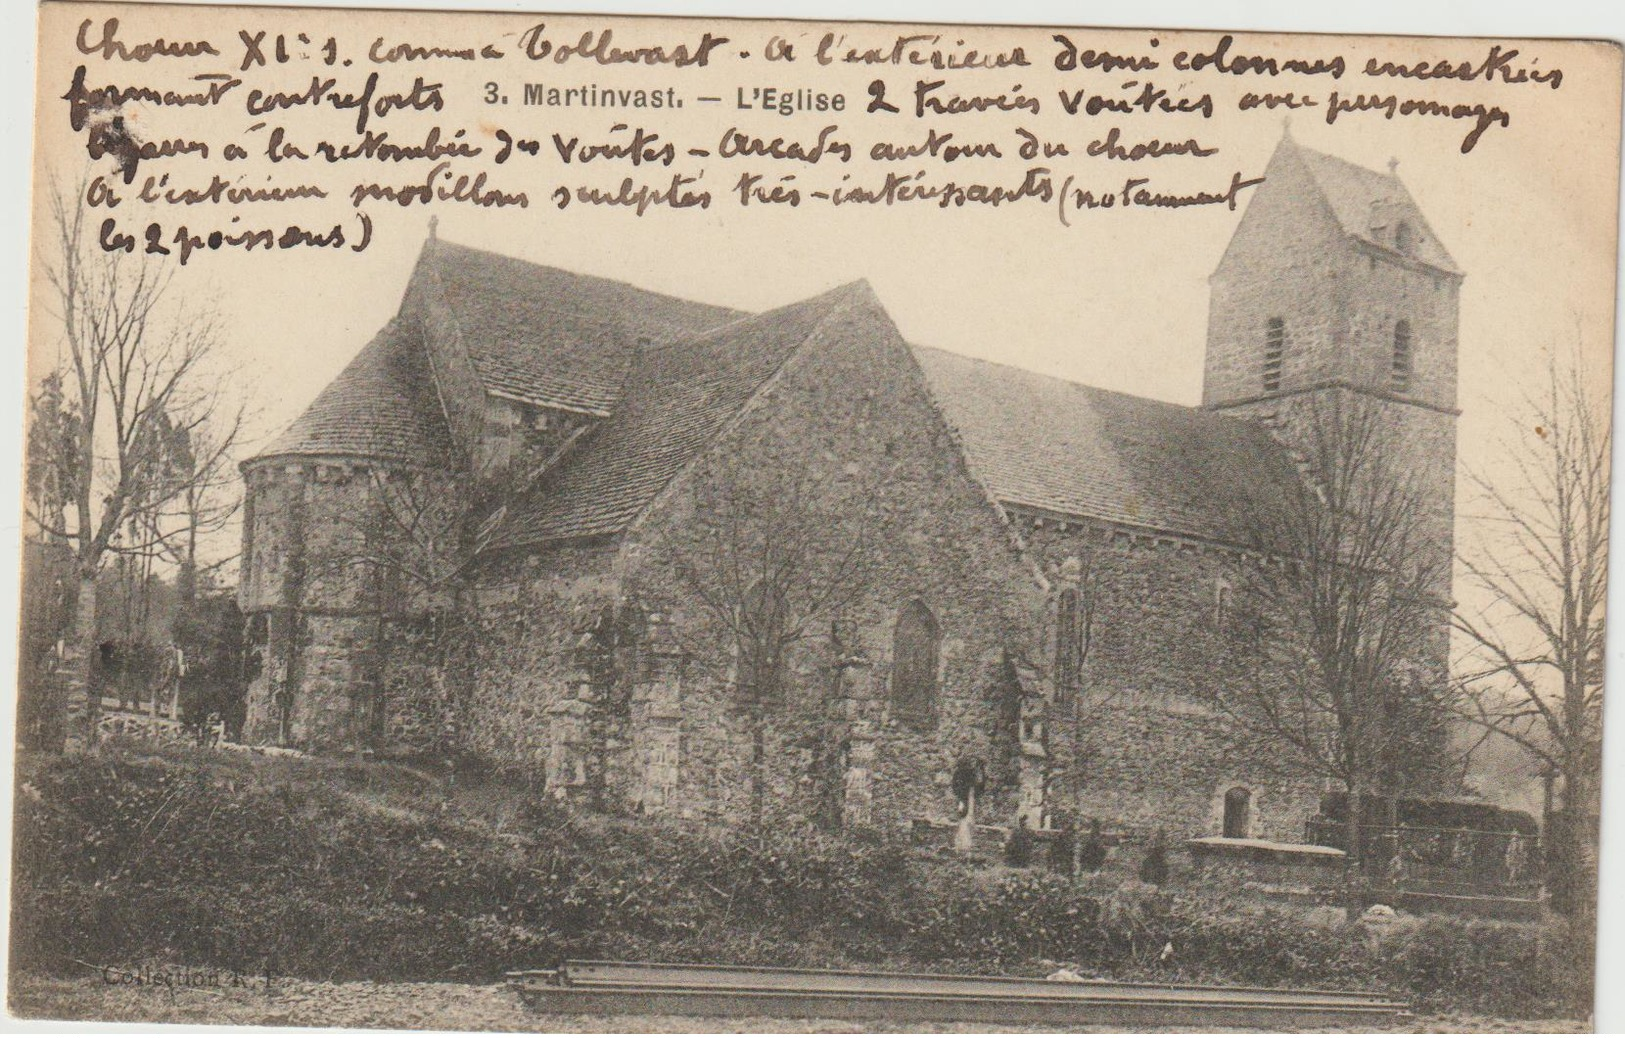 Choeur XIe s. comme à Tollevast. A l'extérieur demi colonnes encastrées
formant contreforts 3. Martinvast. — L'Eglise 2 travées voûtées avec personnages
à la retombée des voûtes - Arcades autour du choeur
A l'extérieur modillons sculptés très-intéressants (notamment
les 2 poissons)
Collection R. F.